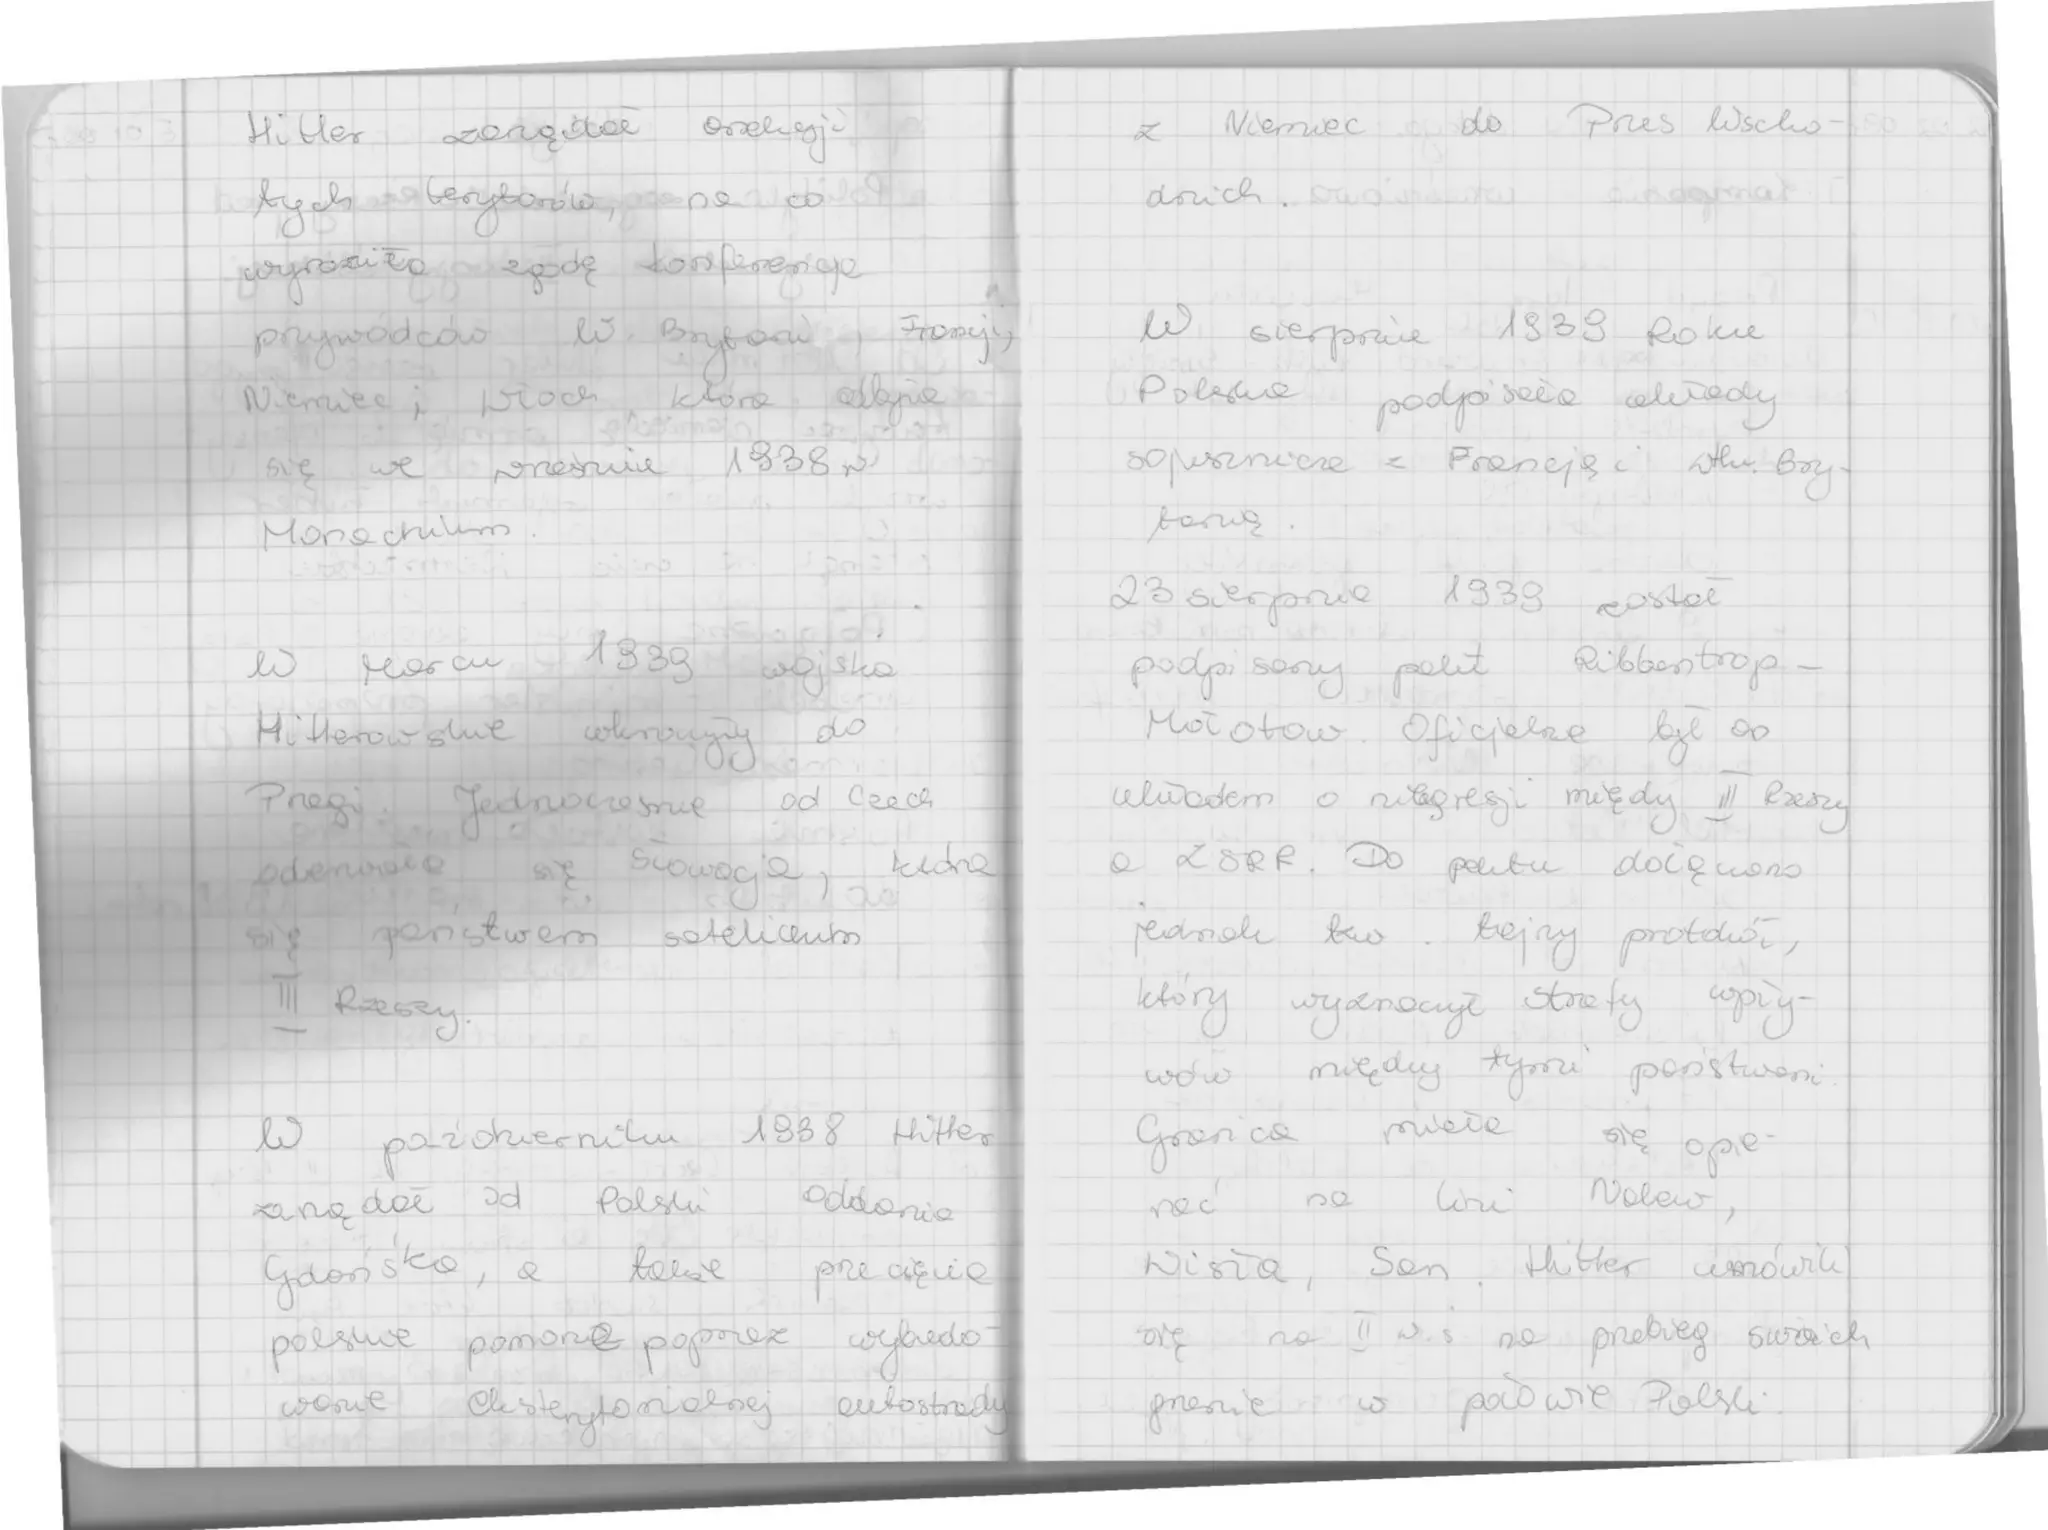 Hitler zarządał aneksji
tych terytorów, na co
wyraziła zgodę konferencja
przywódców W. Brytani, Francji,
Niemiec i Włoch która odbyła
się we wrześniu 1938 w
Monachium.
W Marcu 1939 wojska
Hitlerowskie wkroczyły do
Pragi. Jednocześnie od Czech
oderwała się Słowacja, która
się państwem satelickim
III Rzeszy.
W październiku 1938 Hitler
zarządał od Polski oddania
Gdańska, a także przecięcie
polskie pomorze poprzez wybudo-
wanie eksterytorialnej autostrady
z Niemiec do Prus Wscho-
dnich.
W sierpnie 1939 Roku
Polska podpisała układy
sojusznicze z Francją i Wlk. Bry-
tanią.
23 sierpnia 1939 został
podpisany pakt Ribbentrop-
Mołotow. Oficjalne był on
układem o nieagresji między III Rzeszy
a ZSRR. Do paktu dołączono
jednak tzw. tajny protokół,
który wyznaczył strefy wpły-
wów między tymi państwami.
Granica miała się opie-
rać na lini Narew,
Wisła, San. Hitler umówili
się na II w.ś na przebieg swoich
granic w połowie Polski.